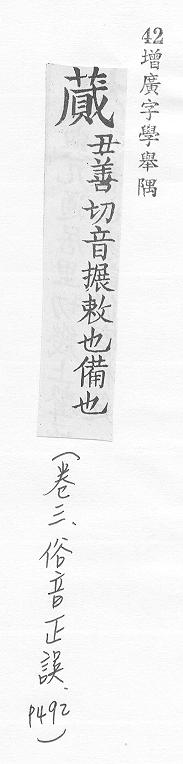 42增廣字學舉隅
蕆 丑善切音搌敕也備也
（卷三、俗音正誤、P492）